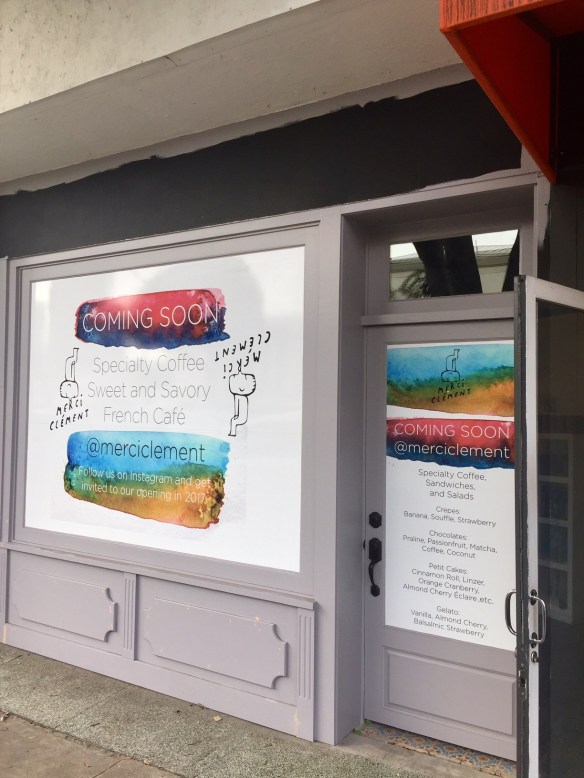 COMING SOON
MERCI
CLÉMENT
Specialty Coffee
Sweet and Savory
French Café
MERCI,
CLEMENT
@merciclement
Follow us on Instagram and get
invited to our opening in 2017!
MERCI
CLÉMENT
COMING SOON
@merciclement
Specialty Coffee,
Sandwiches,
and Salads
Crepes:
Banana, Souffle, Strawberry
Chocolates:
Praline, Passionfruit, Matcha,
Coffee, Coconut
Petit Cakes:
Cinnamon Roll, Linzer,
Orange Cranberry,
Almond Cherry Éclaire,etc.
Gelato:
Vanilla, Almond Cherry,
Balsalmic Strawberry